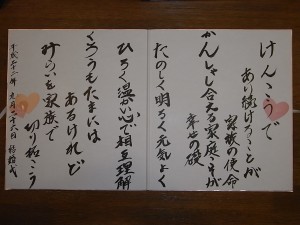 けんこうで
あり続けることが
家族の使命
かんしゃし合える家庭こそが
幸せの礎
たのしく明るく元気よく
ひろく温かい心で相互理解
くろうもたまには
あるけれど
みらいを家族で
切り拓こう
平成二十二年